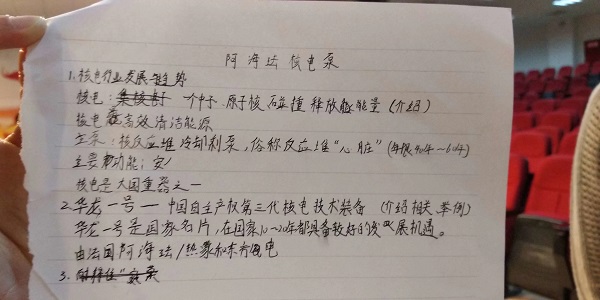 阿海法 核电泵
1. 核电行业发展趋势
核电: 一个中子 原子核 碰撞 释放能量 (介绍)
核电 高效清洁能源
主泵: 核反应堆冷却剂泵, 俗称反应堆“心脏”
主要功能:
核电是大国重器之一
2. 华龙一号 — 中国自主产权第三代核电技术装备 (介绍相关 举例)
华龙一号是国家名片, 在国家10~20年都具备较好的发展机遇。
由法国阿海法/热蒙和东方电
3.